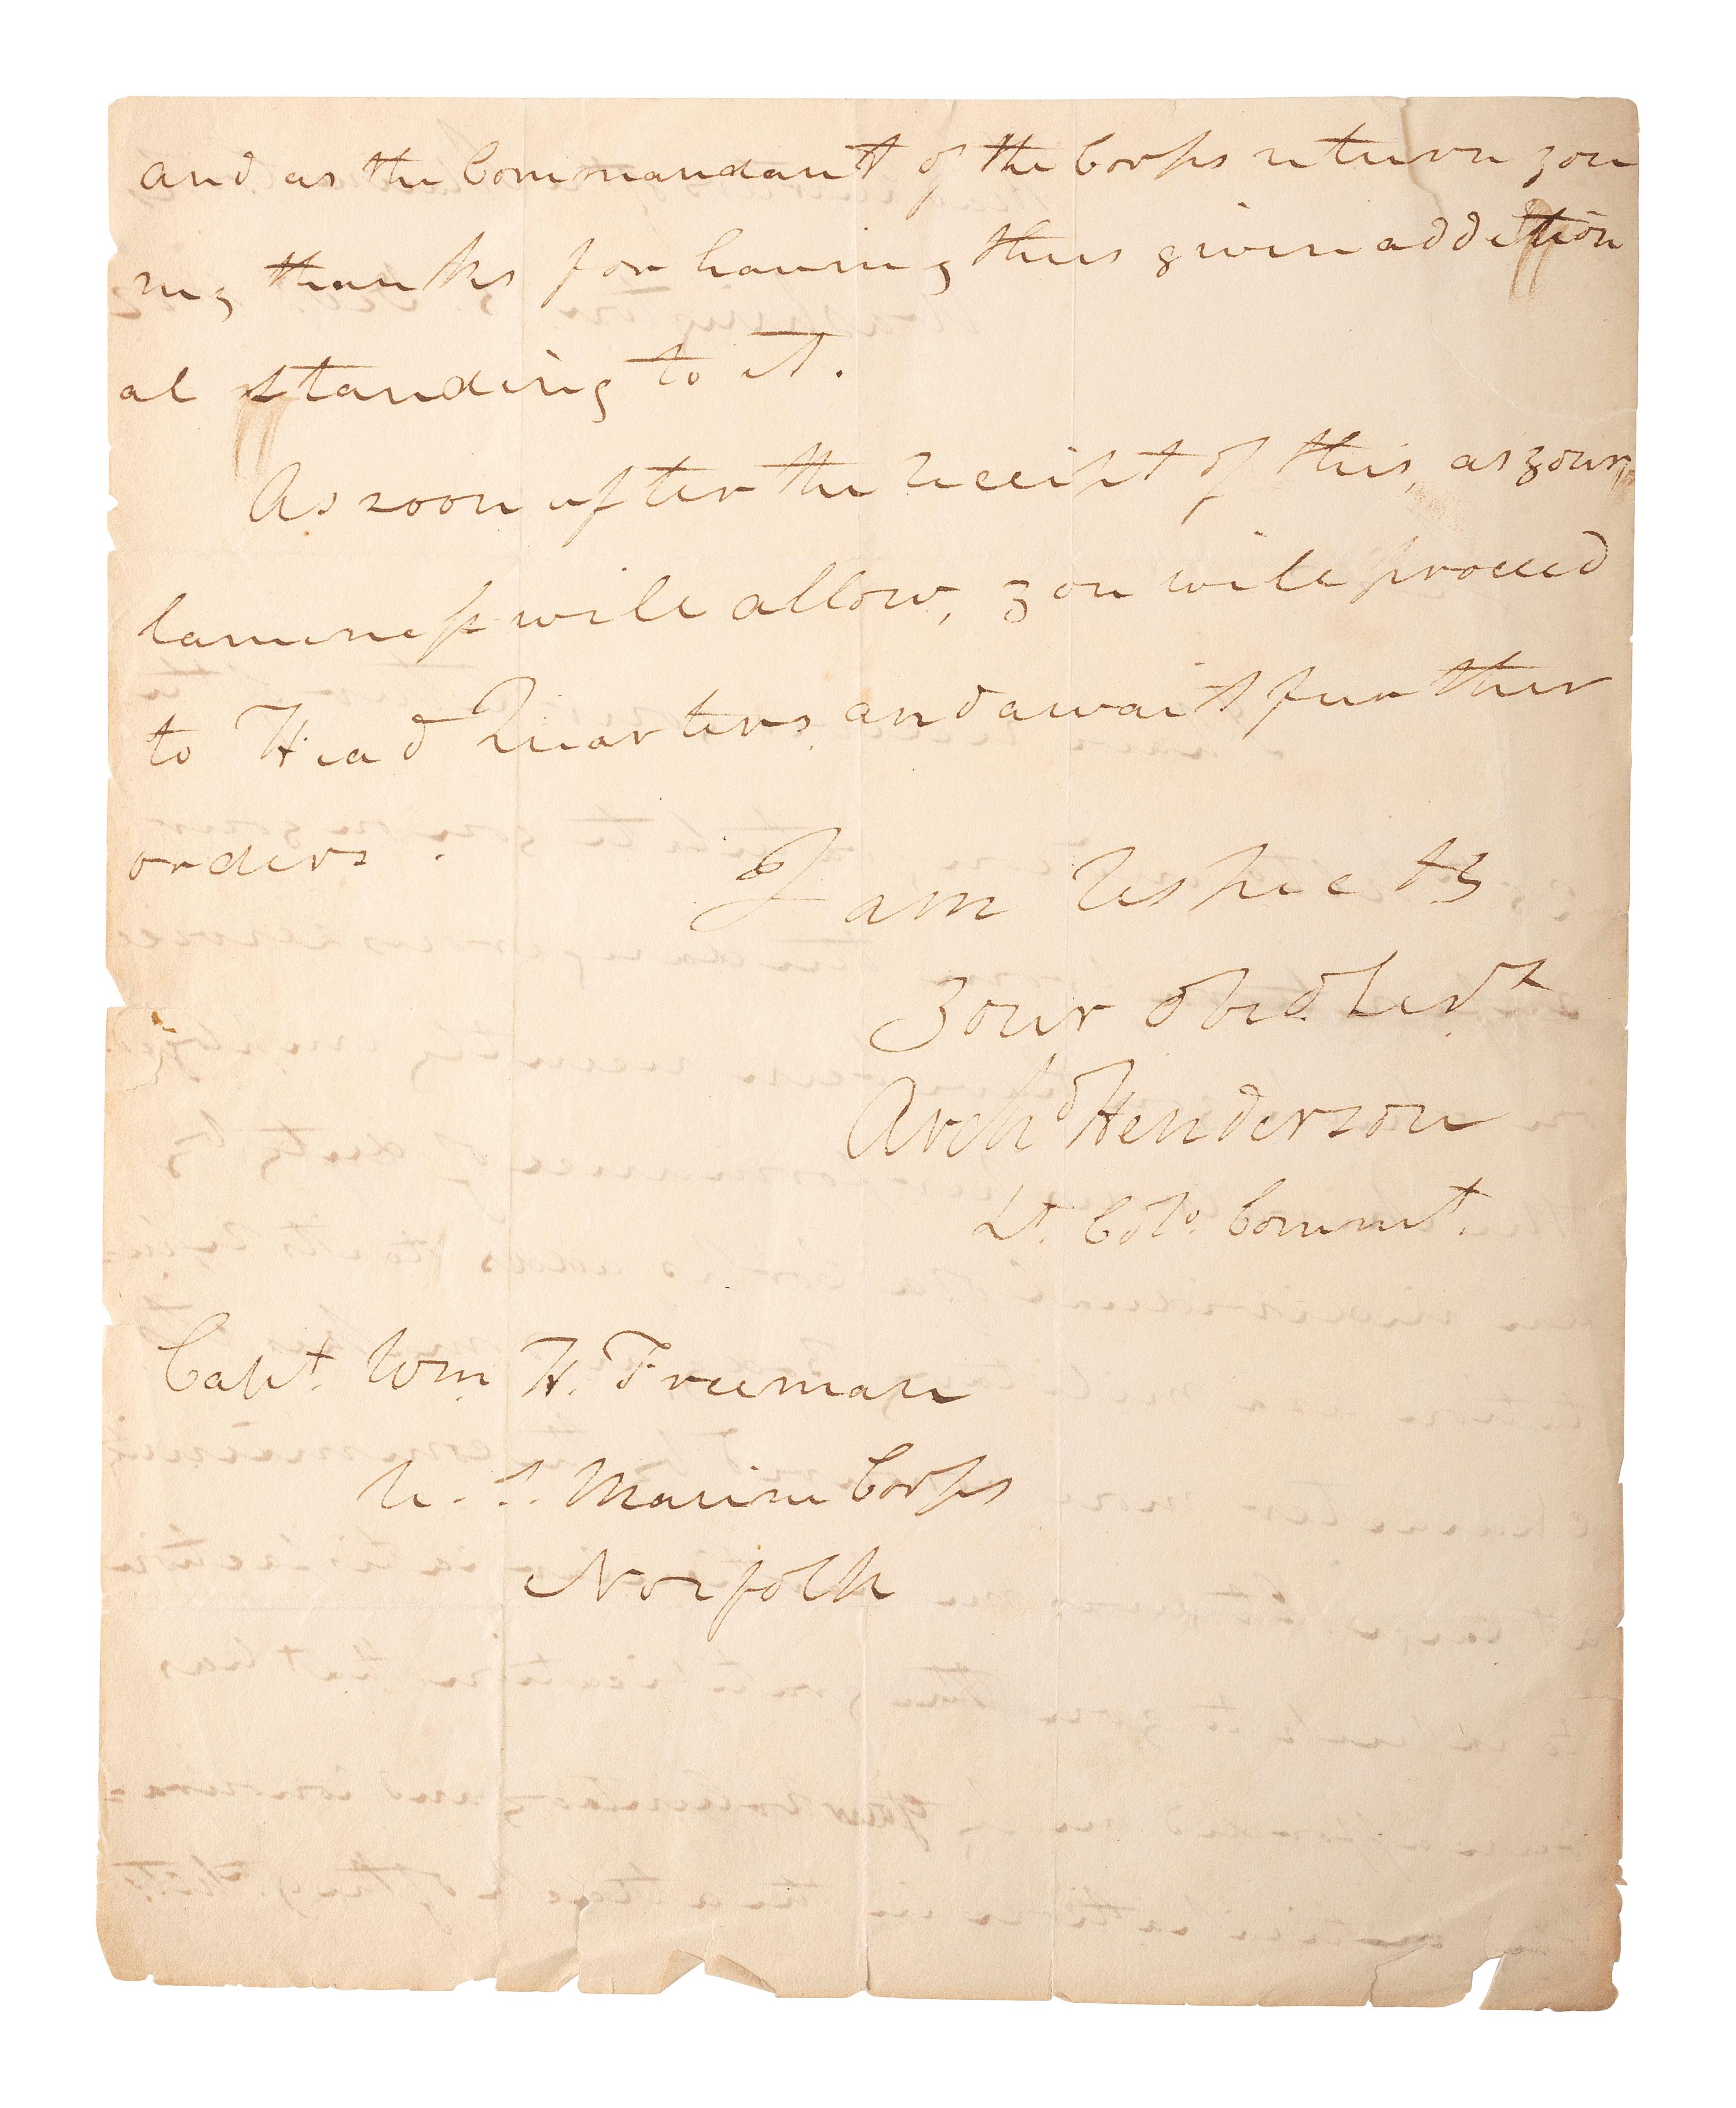 and as the Commandant of the Corps return you
my thanks for having thus given addition
al standing to it.
As soon after the receipt of this, as your
lameness will allow, you will proceed
to Head Quarters and await further
orders.
I am Respecty
Your Obed. Servt
Archd Henderson
Lt. Colo. Commt.
Capt. Wm H. Freeman
U.S. Marine Corps
Norfolk